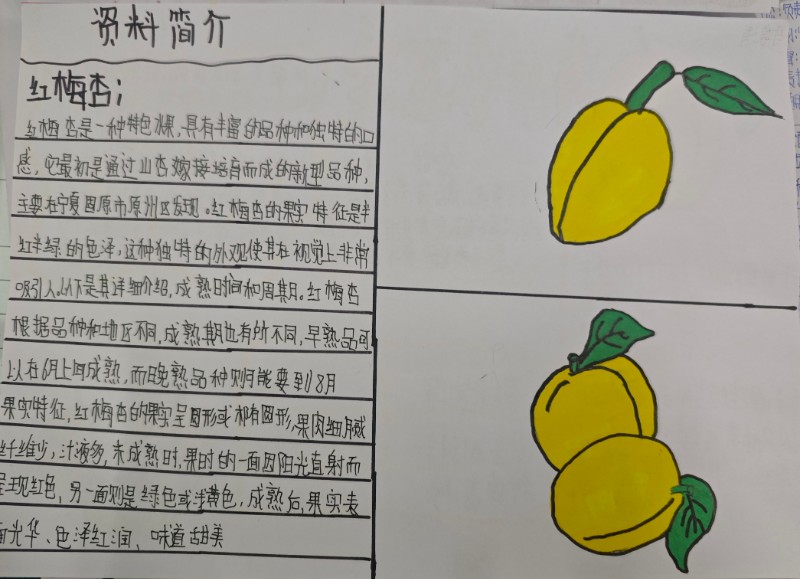 资料简介
红梅杏;
红梅杏是一种特色水果,具有丰富的品种和独特的口
感,它最初是通过山杏嫁接培育而成的新型品种,
主要在宁夏固原市原州区发现。红梅杏的果实特征是半
红半绿的色泽,这种独特的外观使其在视觉上非常
吸引人。以下是其详细介绍,成熟时间和周期。红梅杏
根据品种和地区不同,成熟期也有所不同,早熟品可
以在6月上旬成熟,而晚熟品种则可能要到8月
果实特征,红梅杏的果实呈圆形或椭圆形,果肉细腻
纤维少,汁液多,未成熟时,果时的一面因阳光直射而
呈现红色,另一面则是绿色或浅黄色,成熟后,果实表
面光华、色泽红润、味道甜美